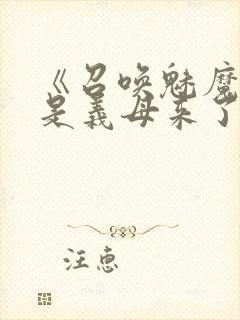 《召唤魅魔
是义母来了
汪惠